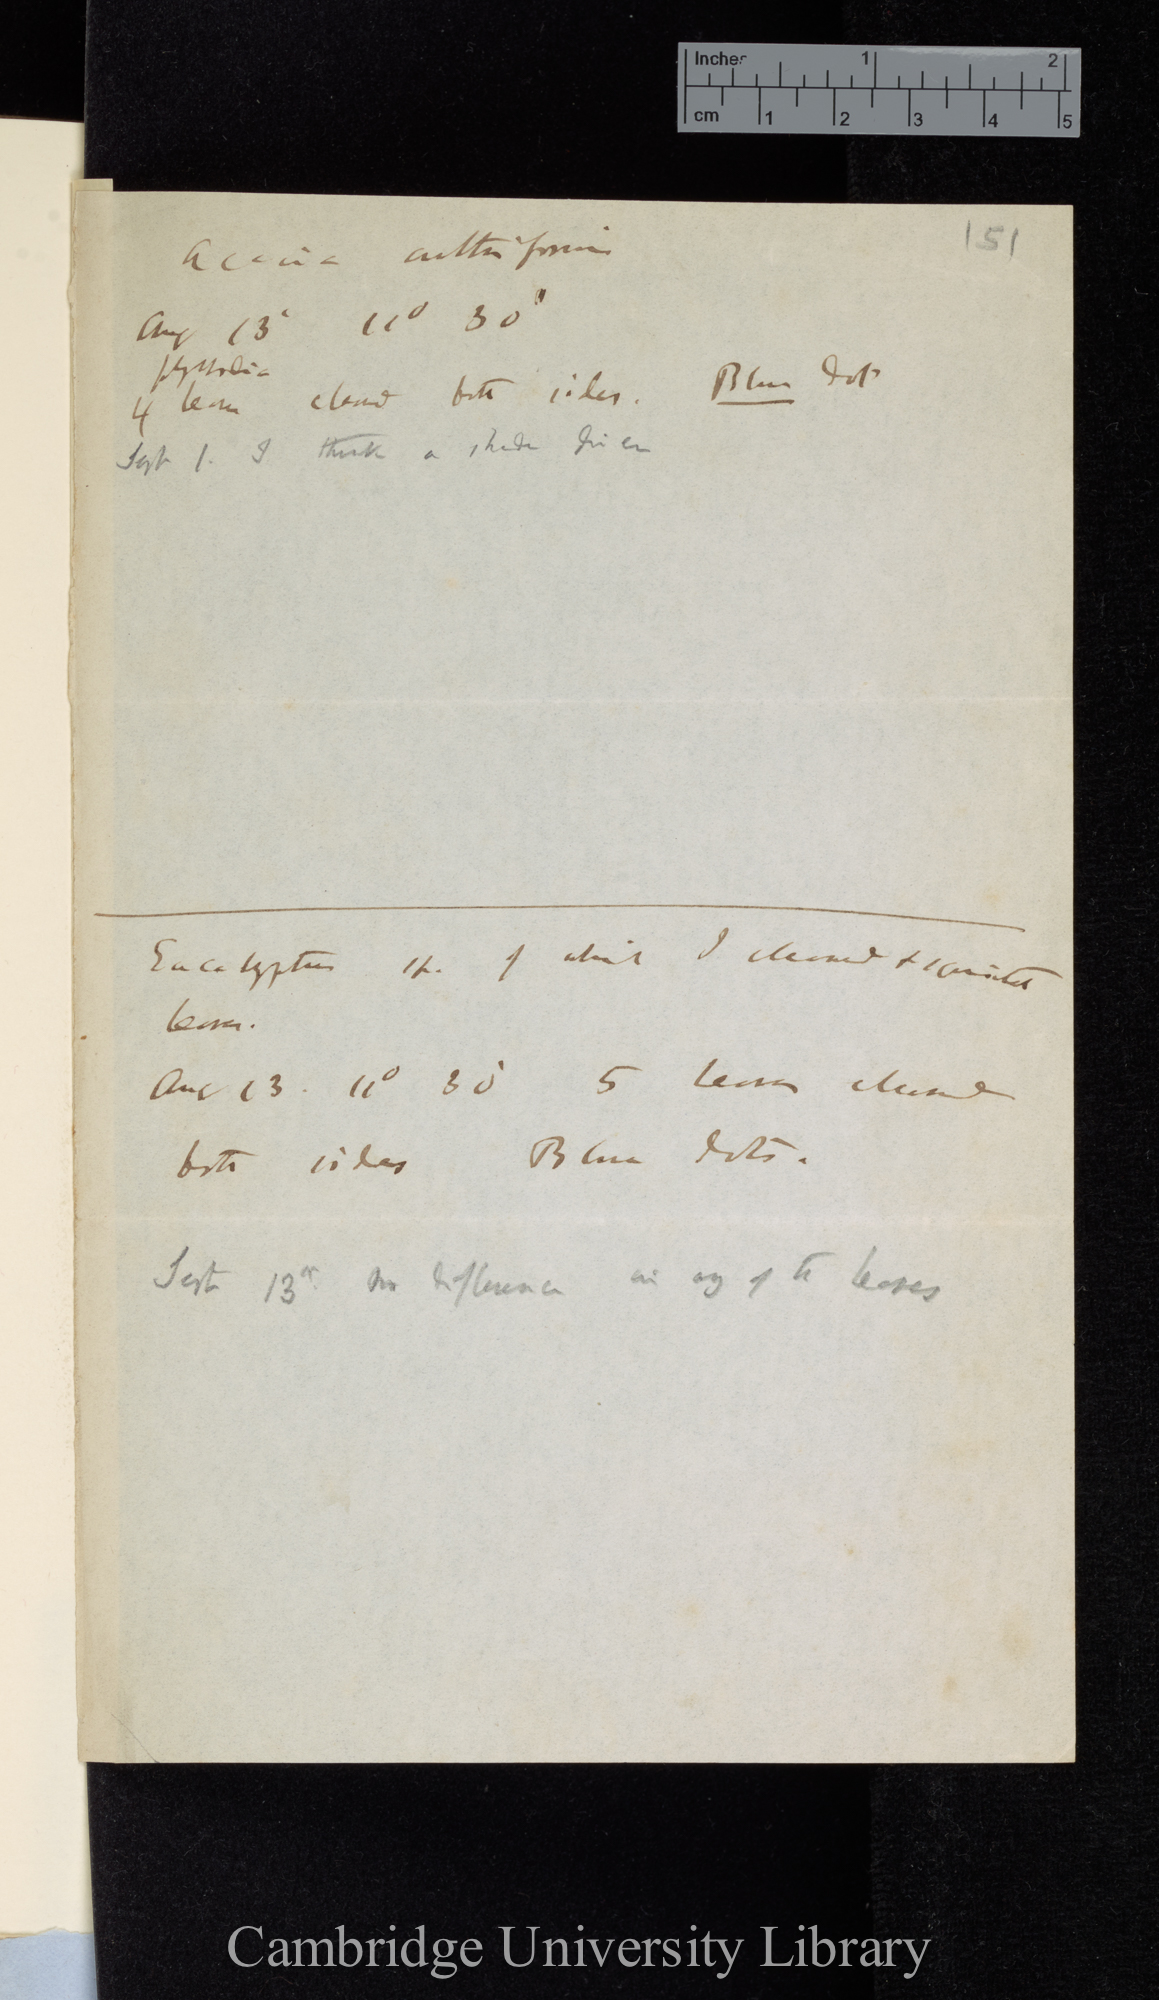 Inches 1 2
cm 1 2 3 4 5
151
Acacia cultriformis
Aug 13' 11° 30'
phyllodia
4 leaves cleaned both sides. Blue dots
Sept 1. I think a shade drier
Eucalyptus sp. of which I cleaned &
leaves.
Aug 13. 11° 30' 5 leaves cleaned
both sides Blue dots.
Sept 13th no difference in any of the leaves
Cambridge University Library